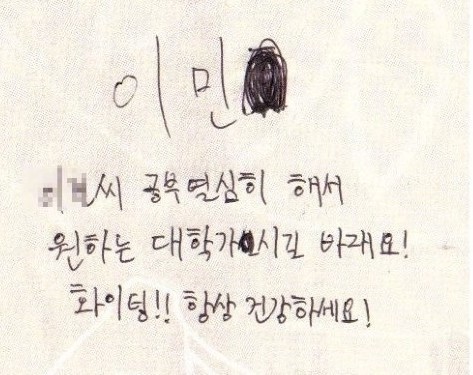 이민
씨 공부 열심히 해서
원하는 대학가시길 바래요!
화이팅!! 항상 건강하세요!